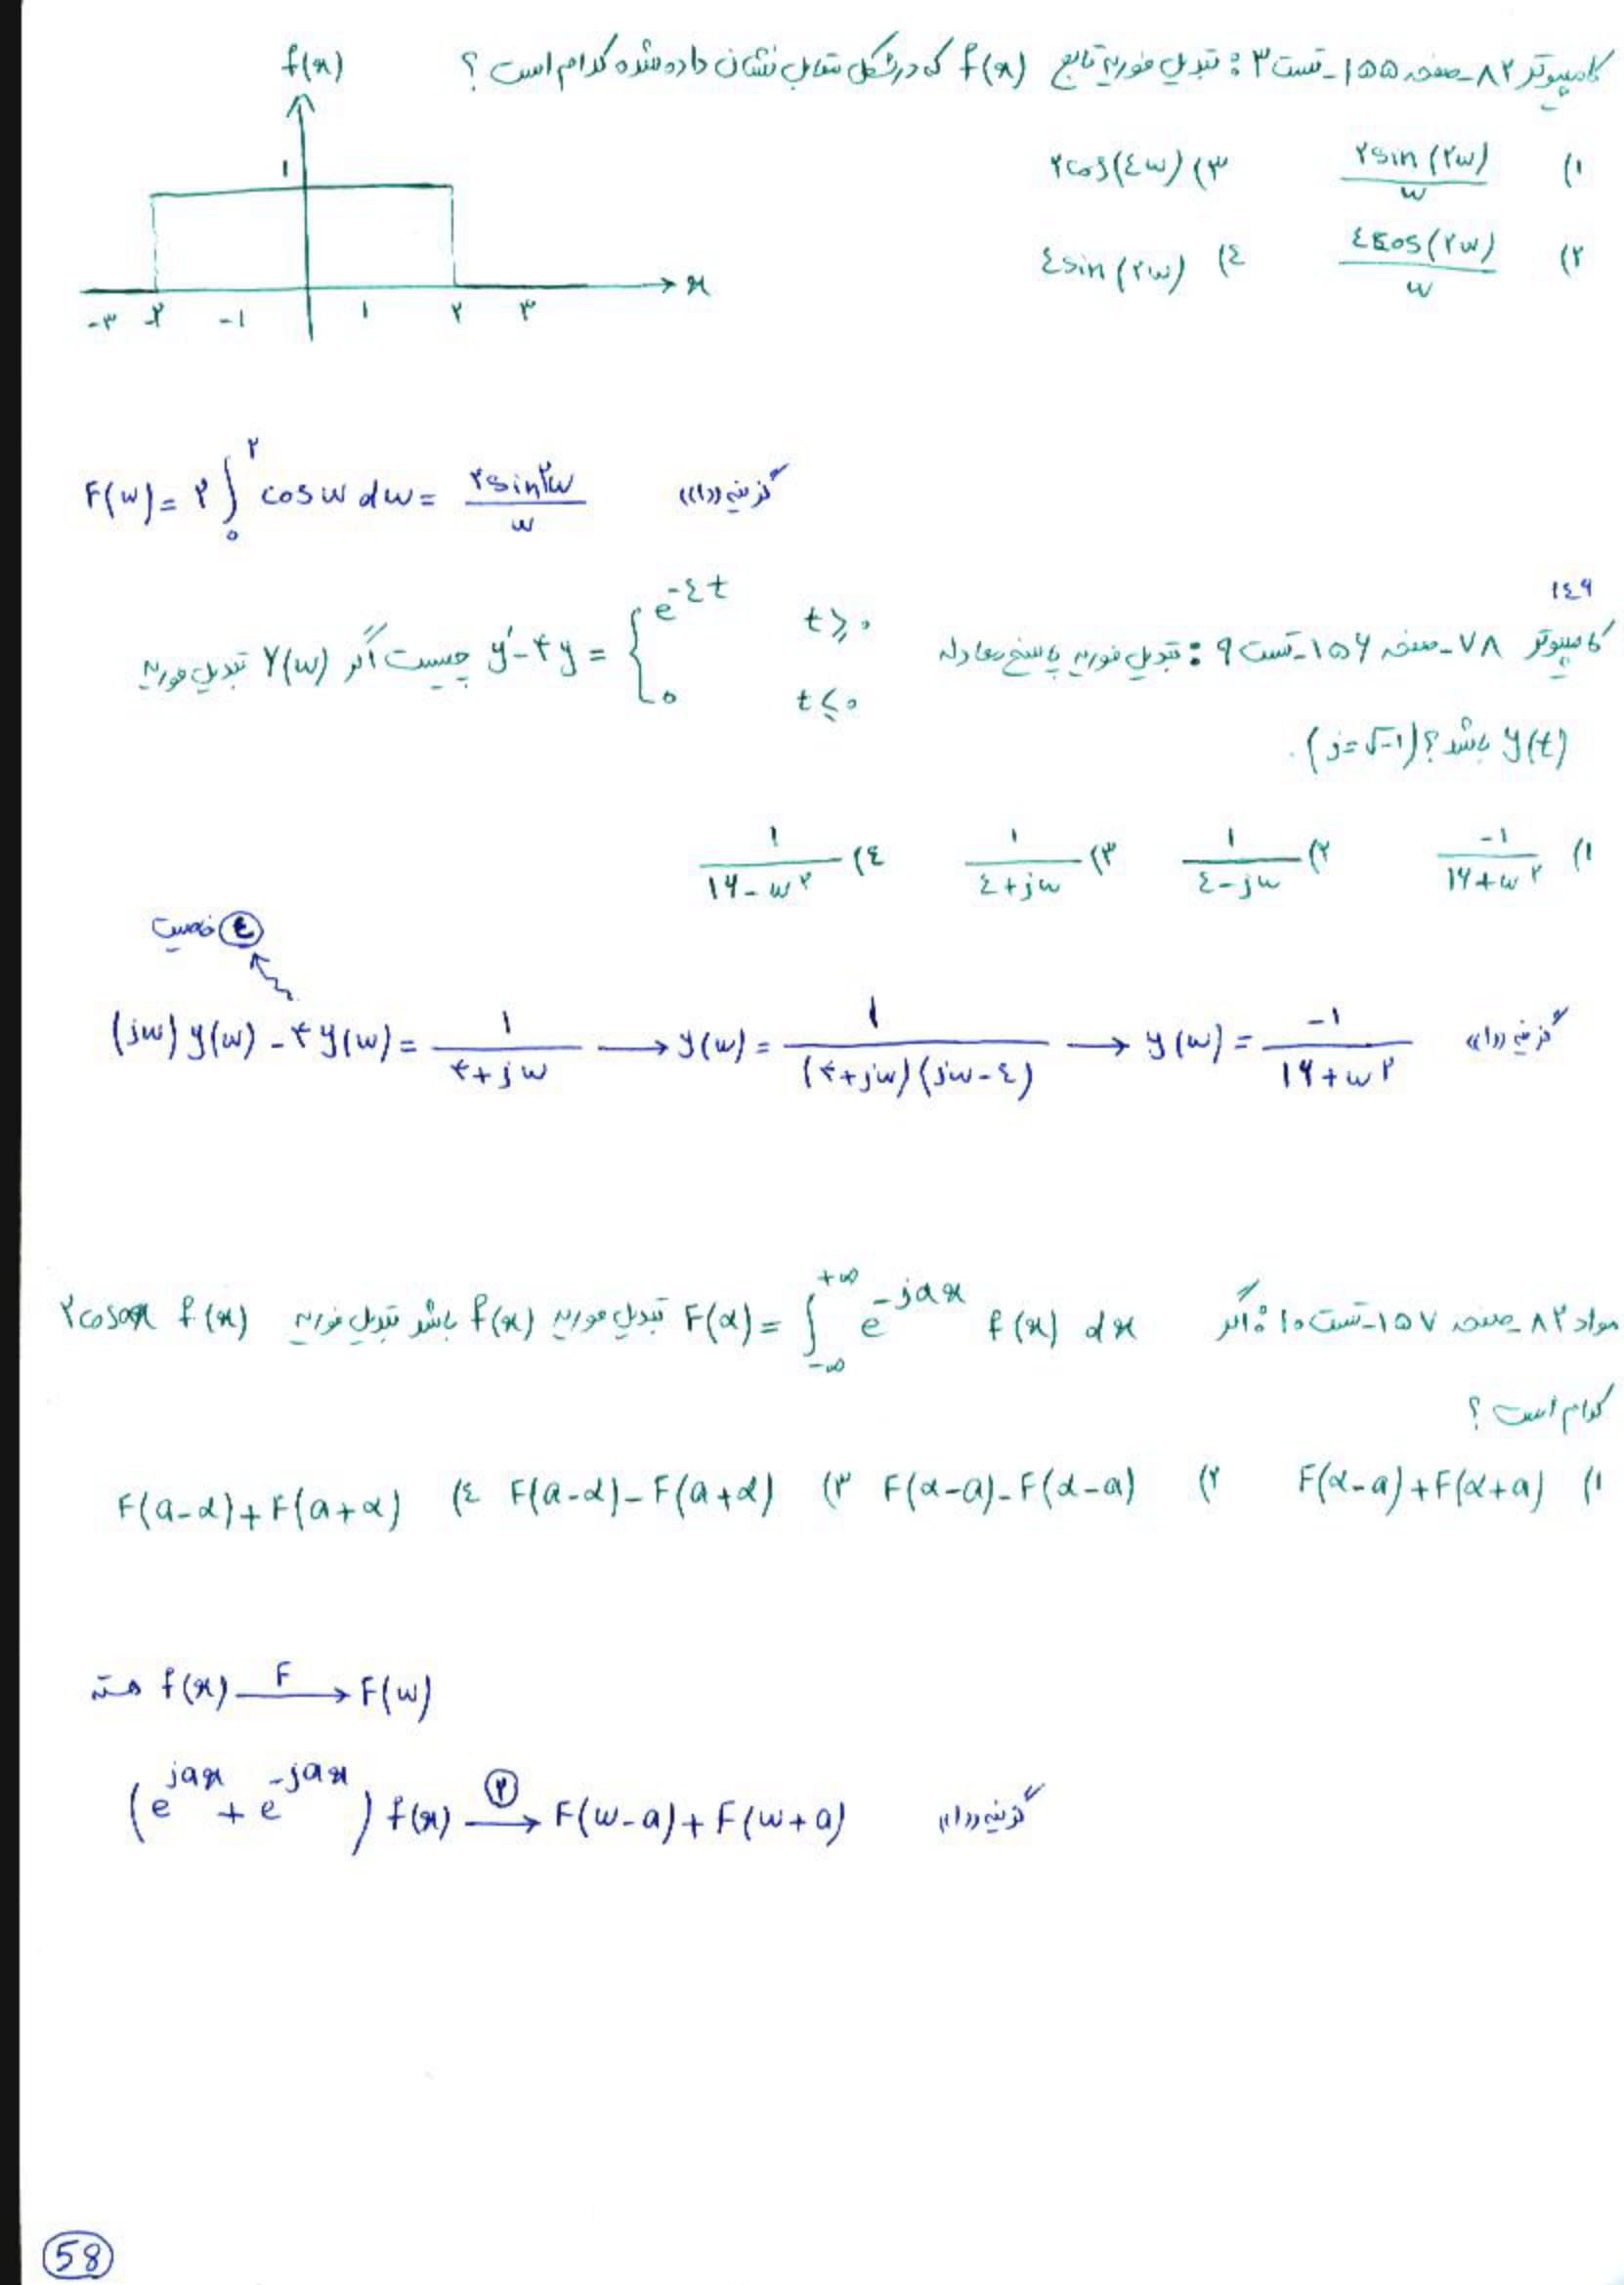 کامپیوتر ۸۲ـ صفحه ۱۵۵ـ تست ۳ : تبدیل فوریه تابع f(x) که در شکل مقابل نشان داده شده کدام است ؟
f(x)
۱
-۳ -۲ -۱ ۱ ۲ ۳ x
۱) ۲sin(۲w)/w ۳) ۲cos(٤w)
۲) ٤cos(۲w)/w ٤) ٤sin(۲w)
F(w) = ۲∫₀^۲ cos w dw = ۲sin۲w/w گزینه «۱»
۱٤۹
کامپیوتر ۷۸ـ صفحه ۱۵۶ـ تست ۹ : تبدیل فوریه پاسخ معادله y′-۴y = { e^{-٤t} t⩾۰ , ۰ t⩽۰ چیست اگر Y(w) تبدیل فوریه
y(t) باشد؟ (j=√-۱).
۱) -۱/(۱۶+w^۲) ۲) ۱/(٤-jw) ۳) ۱/(٤+jw) ٤) ۱/(۱۶-w^۲)
خاصیت ④
(jw) y(w) - ۴y(w) = ۱/(۴+jw) → y(w) = ۱/((۴+jw)(jw-٤)) → y(w) = -۱/(۱۶+w^۲) گزینه «۱»
مواد ۸۲ـ صفحه ۱۵۷ـ تست ۱۰ : اگر F(α) = ∫_{-∞}^{+∞} e^{-jαx} f(x) dx تبدیل فوریه f(x) باشد تبدیل فوریه ۲cosax f(x)
کدام است ؟
۱) F(α-a)+F(α+a) ۲) F(α-a)-F(α-a) ۳) F(a-α)-F(a+α) ٤) F(a-α)+F(a+α)
f(x) —F→ F(w)
(e^{jax} + e^{-jax}) f(x) —②→ F(w-a)+F(w+a) گزینه «۱»
58